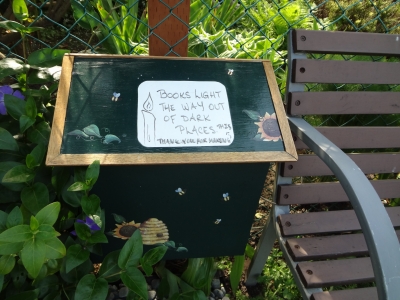 Books Light
The Way Out
of Dark
Places
Thank you for